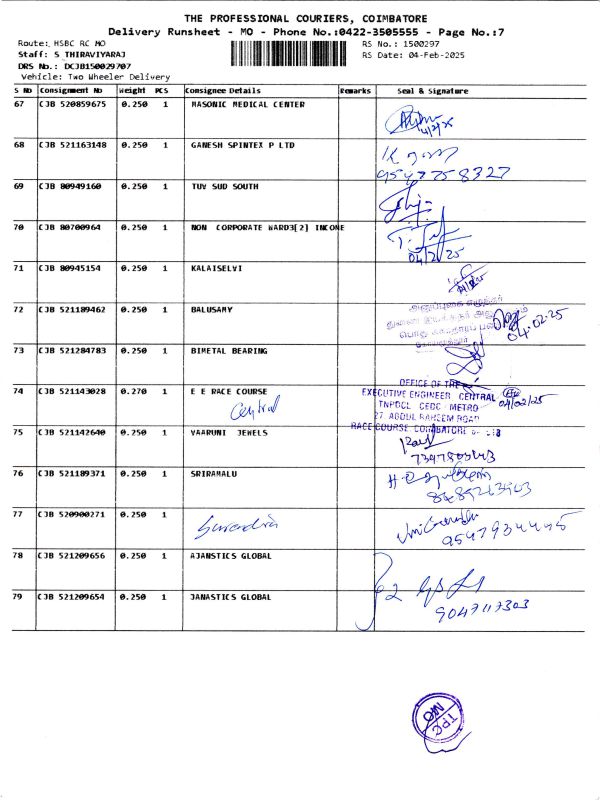 THE PROFESSIONAL COURIERS, COIMBATORE
Delivery Runsheet - MO - Phone No.:0422-3505555 - Page No.:7
Route: HSBC RC MO
RS No.: 1500297
Staff: S THIRAVIYARAJ
RS Date: 04-Feb-2025
DRS No.: DCJB150029707
Vehicle: Two Wheeler Delivery
S No Consignment No Weight PCS Consignee Details Remarks Seal & Signature
67 CJB 520859675 0.250 1 MASONIC MEDICAL CENTER
4/2/25
68 CJB 521163148 0.250 1 GANESH SPINTEX P LTD
9547758327
69 CJB 80949160 0.250 1 TUV SUD SOUTH
70 CJB 80700964 0.250 1 NON CORPORATE WARD3[2] INCONE
04/2/25
71 CJB 80945154 0.250 1 KALAISELVI
72 CJB 521189462 0.250 1 BALUSAMY
04.02.25
73 CJB 521284783 0.250 1 BIMETAL BEARING
74 CJB 521143028 0.270 1 E E RACE COURSE
Central
OFFICE OF THE
EXECUTIVE ENGINEER CENTRAL
04/02/25
TNPDCL CEDC METRO
27 ABDUL RAHEEM ROAD
RACE COURSE COIMBATORE
75 CJB 521142640 0.250 1 VAARUNI JEWELS
76 CJB 521189371 0.250 1 SRIRAMALU
77 CJB 520900271 0.250 1 Surendira
78 CJB 521209656 0.250 1 AJANSTICS GLOBAL
79 CJB 521209654 0.250 1 JANASTICS GLOBAL
9047117303
TPC
MO